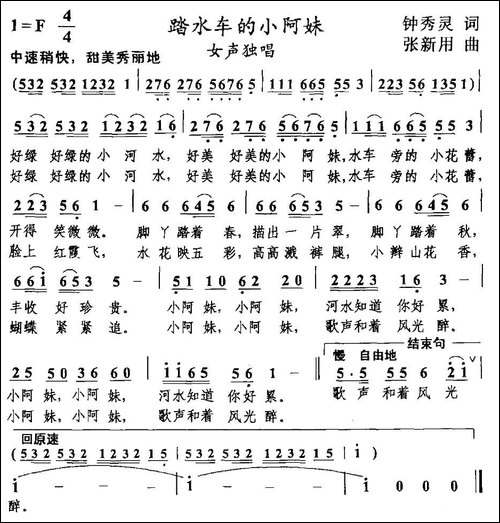 1=F 4/4 踏水车的小阿妹 钟秀灵 词
女声独唱 张新用 曲
中速稍快，甜美秀丽地
(532 532 1232 1 | 276 276 56765 | 111 665 553 | 223 56 1351)
532 532 1232 16 | 276 276 56765 | 111 665 553
好绿 好绿的小 河 水，好美 好美的小 阿 妹，水车 旁的 小花蕾，
好绿 好绿的小 河 水，好美 好美的小 阿 妹，水车 旁的 小花蕾，
223 561 - | 6 6 645 6 | 6 6 645 6 | 6 6 645 6
开得 笑微微。 脚丫踏着 春，描出一片翠， 脚丫踏着 秋，
脸上 红霞飞， 水花映五 彩，高高溅裤腿，小辫山花 香，
661 653 5 - | 51 10 62 20 | 2223 163 -
丰收 好珍 贵。 小阿 妹，小阿 妹， 河水知道 你好累，
蝴蝶 紧紧 追。 小阿 妹，小阿 妹， 歌声和着 风光醉。
结束句
慢 自由地
25 50 36 60 | 1165 561 - | 5·5 55 6 21
小阿 妹，小阿 妹， 河水知道 你好累。 歌 声和着风 光
小阿 妹，小阿 妹， 歌声和着 风光醉。
回原速
(532 532 1232 15 | 532 532 1232 15)
1 - - - | 1 - - - | 1 0 0 0
醉。